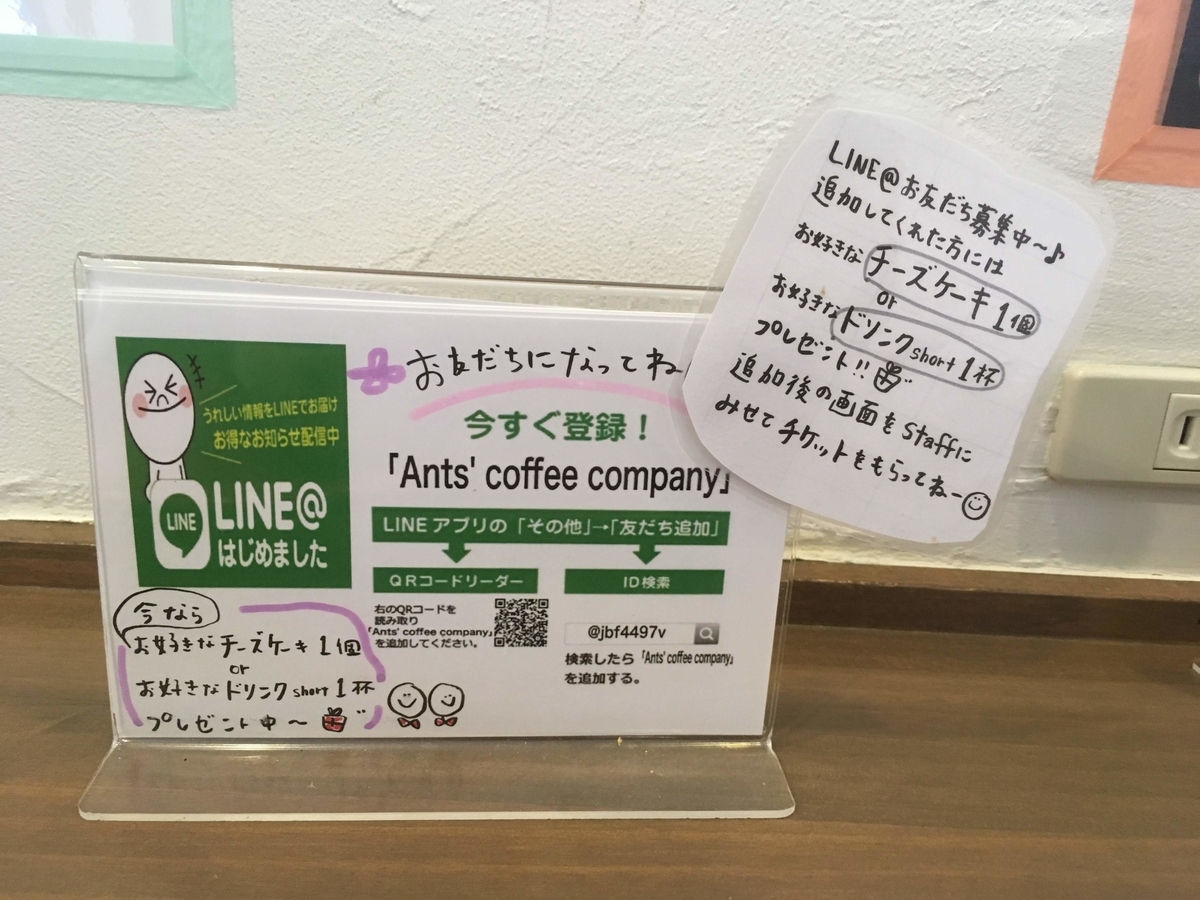 LINE@お友だち募集中〜♪
追加してくれた方には
お好きなチーズケーキ1個
or
お好きなドリンクshort1杯
プレゼント!!
追加後の画面をstaffに
みせてチケットをもらってねー
お友だちになってね
今すぐ登録！
「Ants' coffee company」
LINEアプリの「その他」→「友だち追加」
QRコードリーダー
右のQRコードを
読み取り
「Ants' coffee company」
を追加してください。
ID検索
@jbf4497v
検索したら「Ants' coffee company」
を追加する。
うれしい情報をLINEでお届け
お得なお知らせ配信中
LINE
LINE@
はじめました
今なら
お好きなチーズケーキ1個
or
お好きなドリンクshort1杯
プレゼント中〜